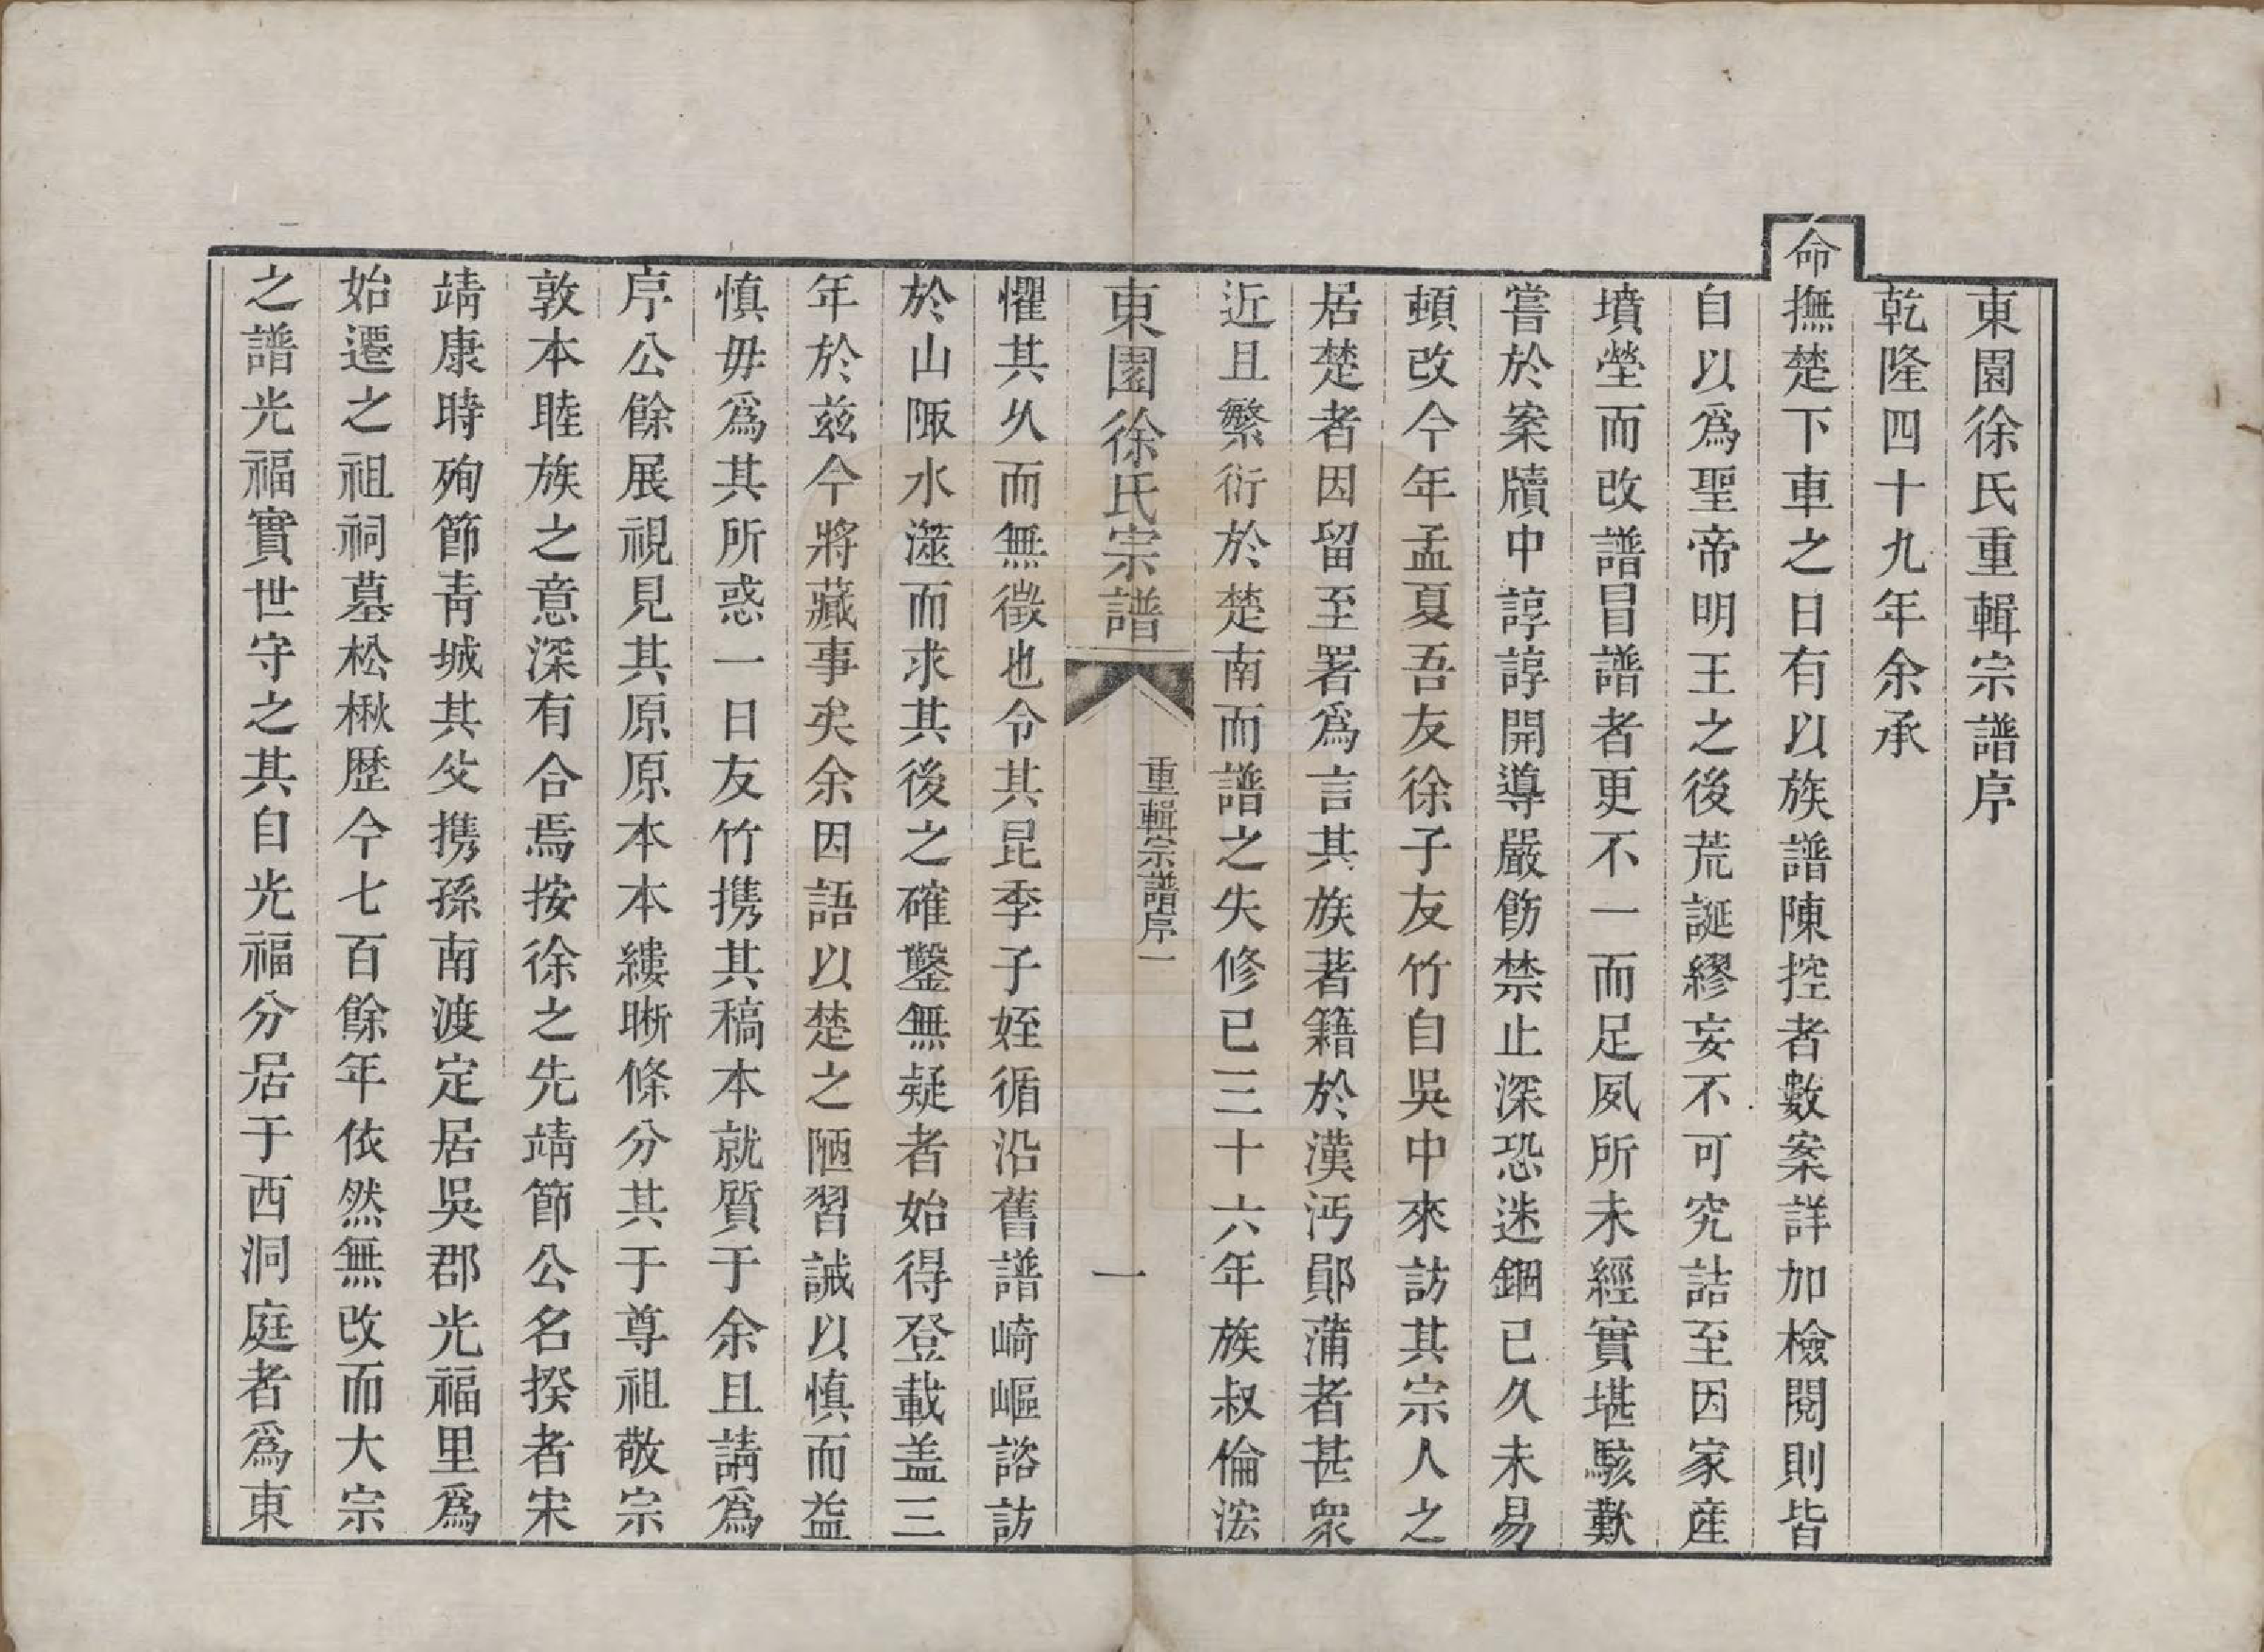 東園徐氏重輯宗譜序
乾隆四十九年余承
命撫楚下車之日有以族譜陳控者數案詳加檢閱則皆
自以爲聖帝明王之後荒誕繆妄不可究詰至因家產
墳塋而改譜冒譜者更不一而足夙所未經實堪駭歎
嘗於案牘中諄諄開導嚴飭禁止深恐迷錮已久未易
頓改今年孟夏吾友徐子友竹自吳中來訪其宗人之
居楚者因留至署爲言其族著籍於漢沔鄖蒲者甚衆
近且繁衍於楚南而譜之失修已三十六年族叔倫浤
東園徐氏宗譜
重輯宗譜序一
一
懼其久而無徵也令其昆季子姪循沿舊譜崎嶇諮訪
於山陬水澨而求其後之確鑿無疑者始得登載盖三
年於兹今將蕆事矣余因語以楚之陋習誡以慎而益
慎毋爲其所惑一日友竹携其稿本就質于余且請爲
序公餘展視見其原原本本縷晰條分其于尊祖敬宗
敦本睦族之意深有合焉按徐之先靖節公名揆者宋
靖康時殉節青城其父携孫南渡定居吳郡光福里爲
始遷之祖祠墓松楸歷今七百餘年依然無改而大宗
之譜光福實世守之其自光福分居于西洞庭者爲東